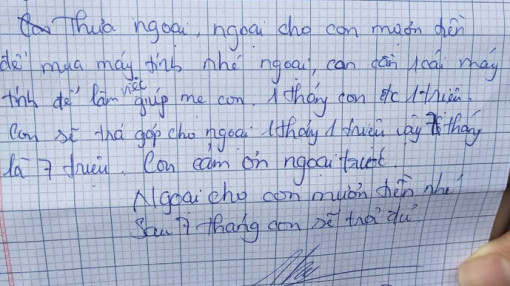 Thưa ngoại, ngoại cho con mượn tiền
để mua máy tính nhé ngoại, con cần 1 cái máy
tính để làm việc giúp mẹ con. 1 tháng con đc 1 triệu.
Con sẽ trả góp cho ngoại 1 tháng 1 triệu vậy 7 tháng
là 7 triệu. Con cảm ơn ngoại trước.
Ngoại cho con mượn tiền nhé
Sau 7 tháng con sẽ trả đủ